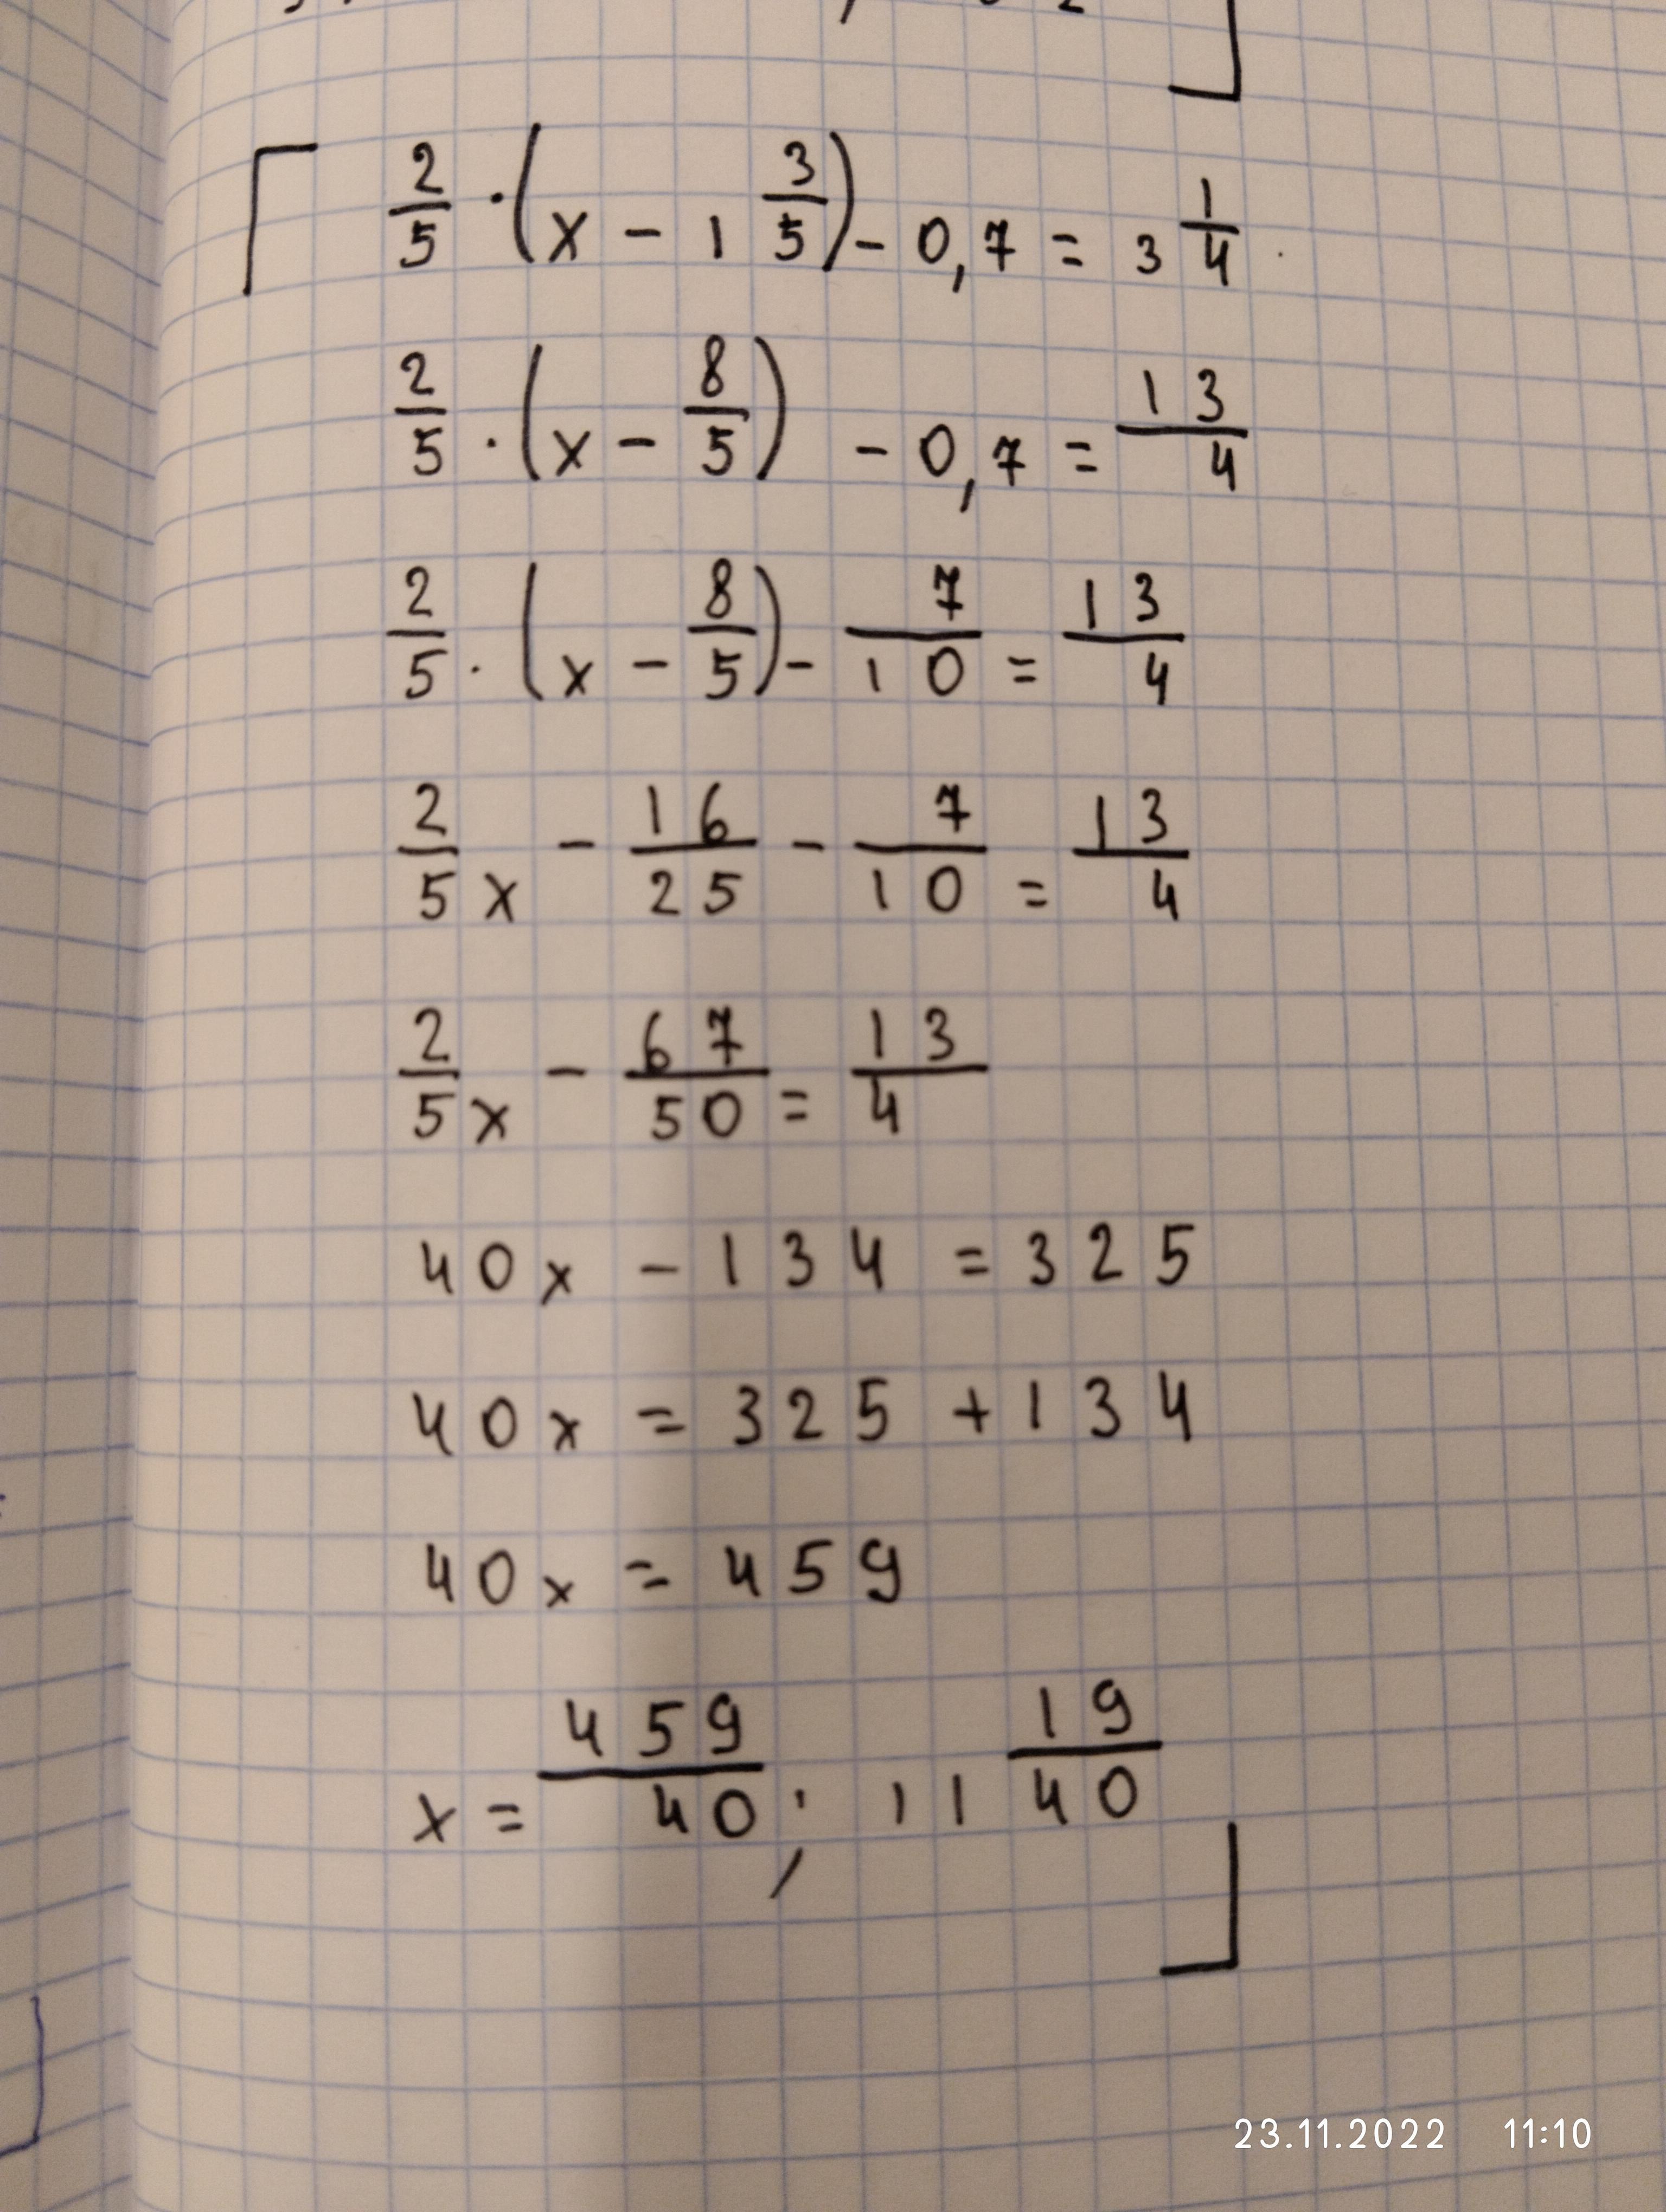 2/5 · (x - 1 3/5) - 0,7 = 3 1/4
2/5 · (x - 8/5) - 0,7 = 13/4
2/5 · (x - 8/5) - 7/10 = 13/4
2/5 x - 16/25 - 7/10 = 13/4
2/5 x - 67/50 = 13/4
40x - 134 = 325
40x = 325 + 134
40x = 459
x = 459/40 ; 11 19/40
23.11.2022 11:10